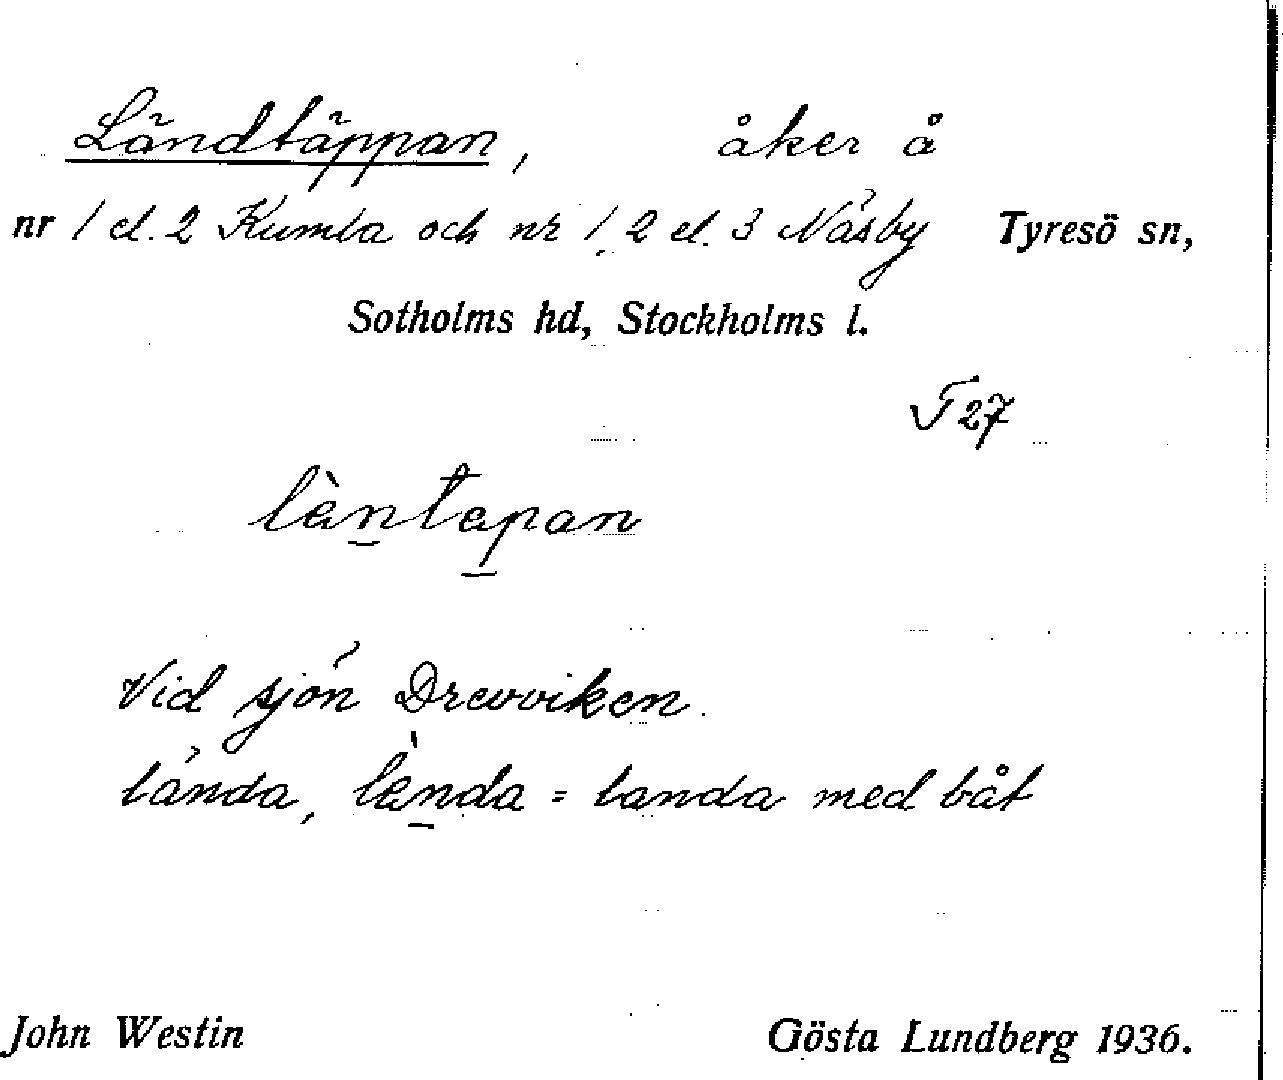 Ländtäppan, åker å
nr 1 el. 2 Kumla och nr 1, 2 el. 3 Näsby Tyresö sn,
Sotholms hd, Stockholms l.
T 27
lèntepan
Vid sjön Drevviken.
lända, lènda = landa med båt
John Westin Gösta Lundberg 1936.